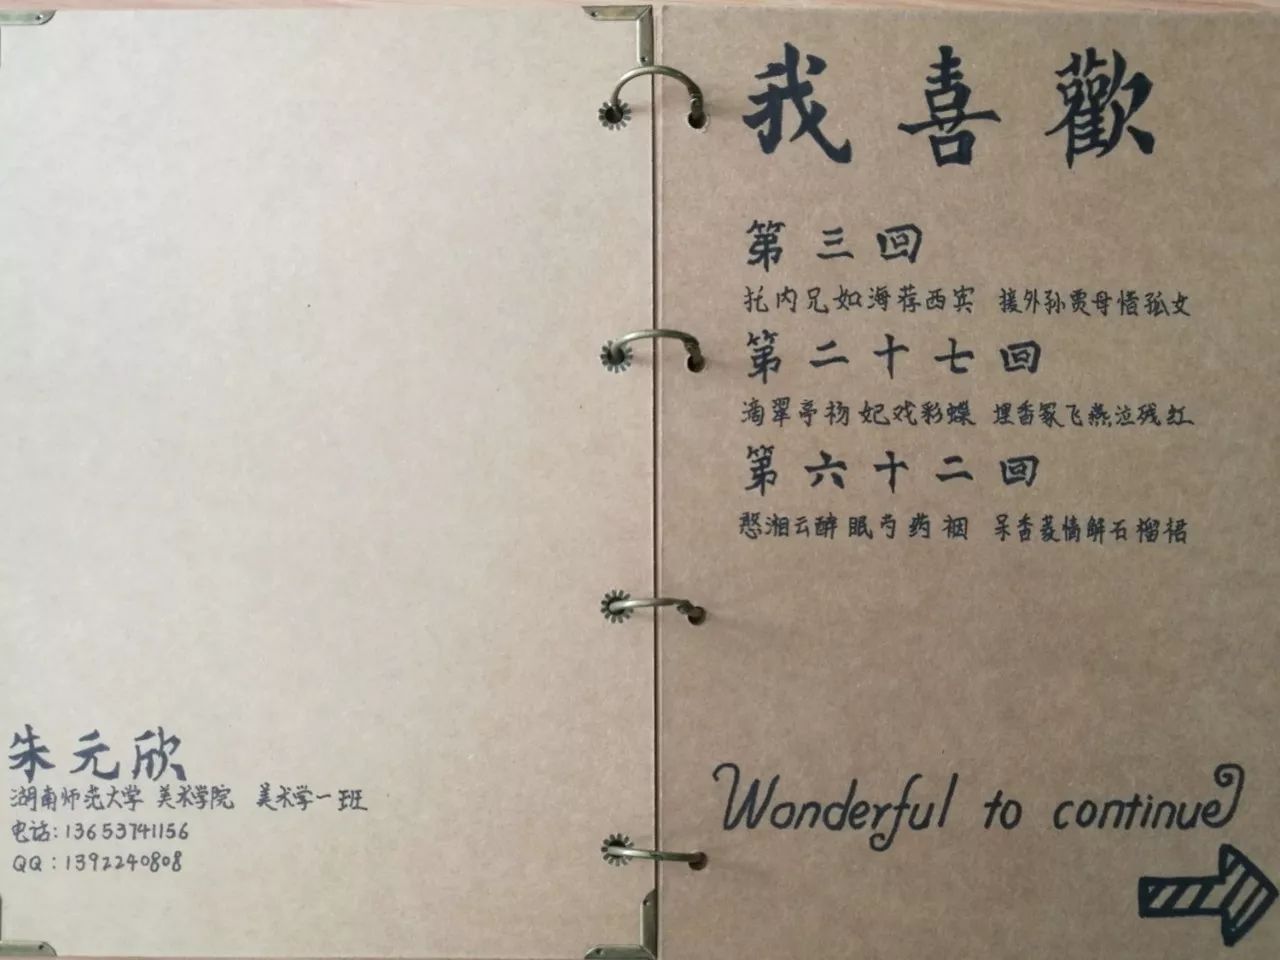 朱元欣
湖南师范大学 美术学院 美术学一班
电话:13653741156
QQ:1392240808
我喜歡
第三回
托内兄如海荐西宾 接外孙贾母惜孤女
第二十七回
滴翠亭杨妃戏彩蝶 埋香冢飞燕泣残红
第六十二回
憨湘云醉眠芍药裀 呆香菱情解石榴裙
Wonderful to continue